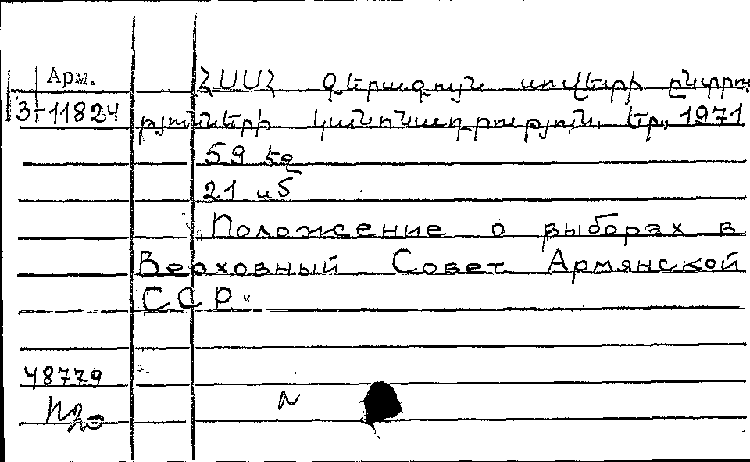 Арм.
3-11824
ՀՍՍՀ Գերագույն սովետի ընտրու
թյունների կանոնադրություն, Եր., 1971
59 էջ
21 սմ
Положение о выборах в
Верховный Совет Армянской
ССР.
48779